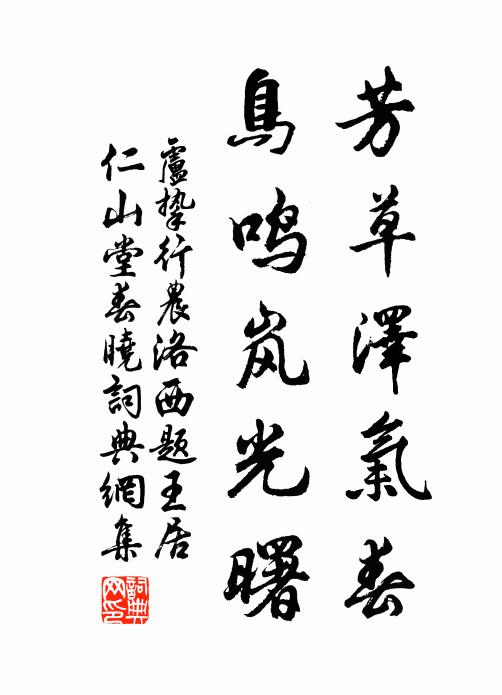 芳草澤氣春
鳥鳴岚光曙
盧挚行農洛西題王居
仁山堂春曉詞典網集
詞典网印